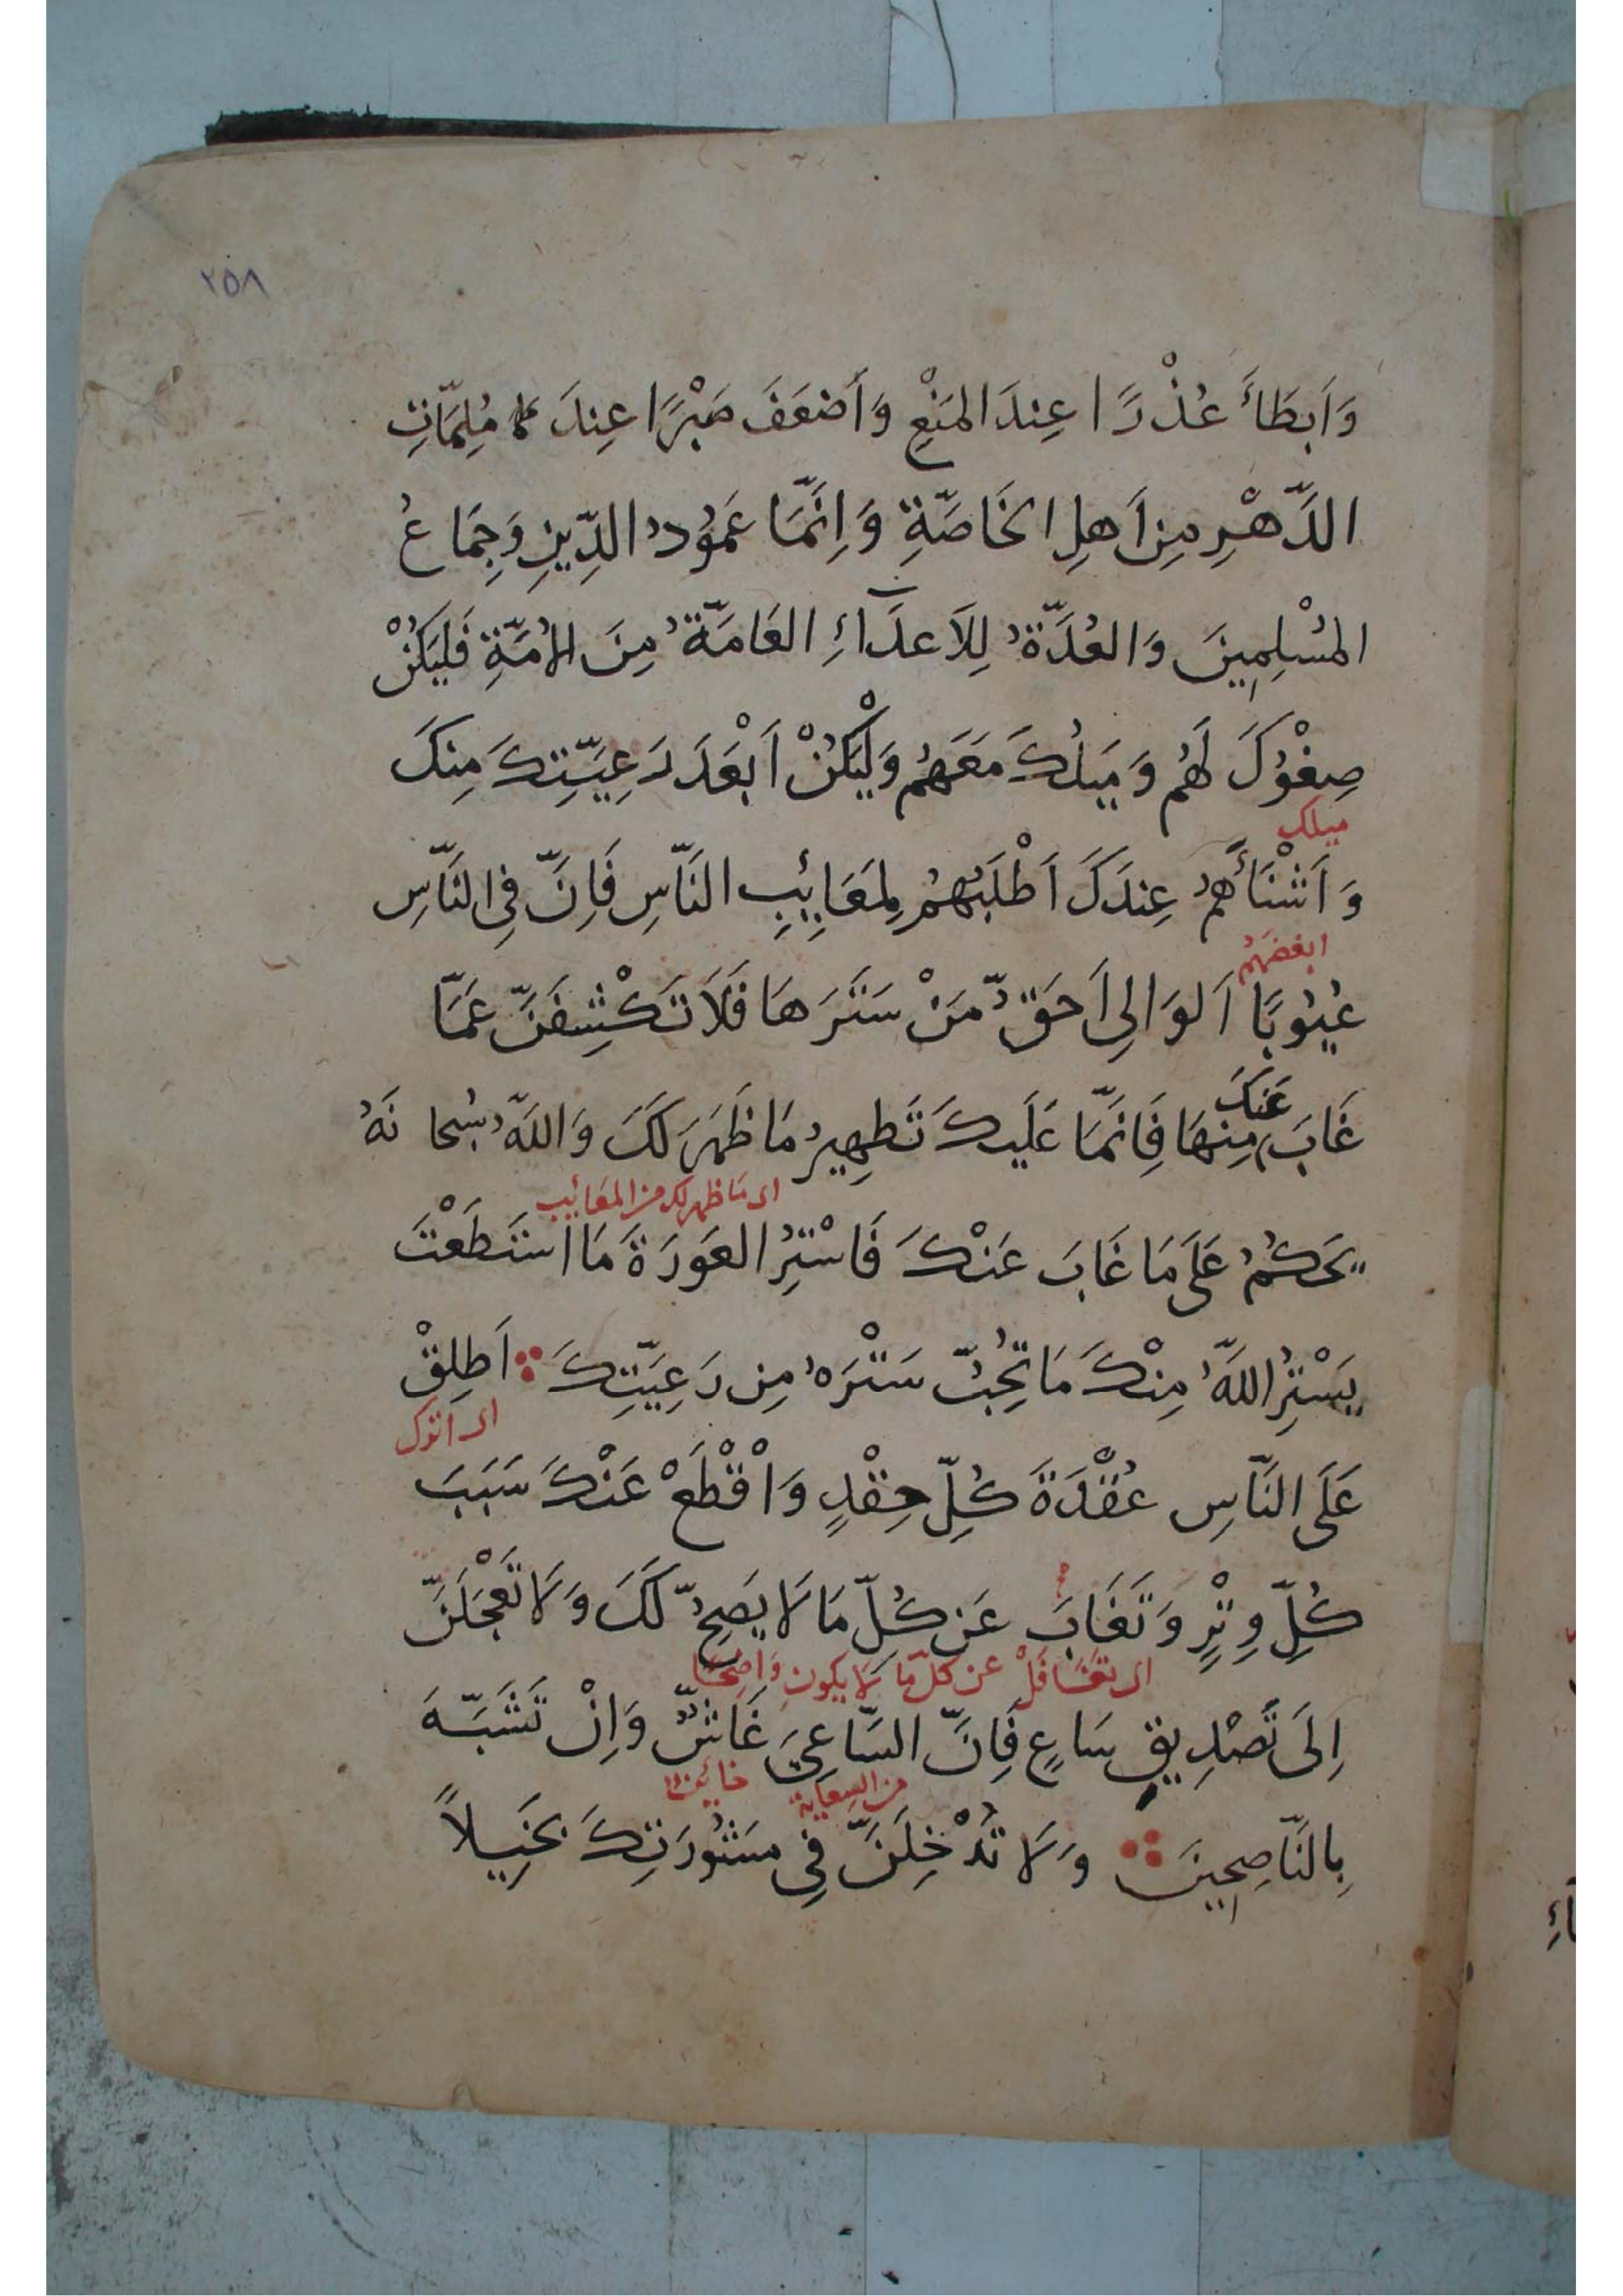 ٢٥٨
وَاَبطَأَ عُذْرًا عِندَ المَنْعِ وَاَضعَفَ صَبْرًا عِندَ مُلِمَّاتِ
الدَّهْرِ مِن اَهلِ الخَاصَّةِ وَاِنَّمَا عَمُودُ الدِّينِ وَجِمَاعُ
المُسْلِمِينَ وَالعُدَّةُ لِلاَعدَآءِ العَامَّةُ مِنَ الاُمَّةِ فَليَكُنْ
صِغْوُكَ لَهُم وَمَيلُكَ مَعَهُم وَلْيَكُنْ اَبْعَدَ رَعِيَّتِكَ مِنكَ
ميلك
وَاَشْنَأَهُم عِندَكَ اَطْلَبُهُم لِمَعَايِبِ النَّاسِ فَاِنَّ فِي النَّاسِ
ابغضهُم
عُيُوبًا اَلوَالِي اَحَقُّ مَنْ سَتَرَهَا فَلَا تَكْشِفَنَّ عَمَّا
غَابَ عَنكَ مِنهَا فَاِنَّمَا عَلَيكَ تَطهِيرُ مَا ظَهَرَ لَكَ وَاللهُ سُبحانَهُ
اى مَا ظهر لك من المعَائب
يَحكُمُ عَلَى مَا غَابَ عَنْكَ فَاسْتُرِ العَورَةَ مَا استَطَعْتَ
يَسْتُرِ اللهُ مِنْكَ مَا تُحِبُّ سَتْرَهُ مِن رَعِيَّتِكَ اَطلِقْ
اى اترك
عَلَى النَّاسِ عُقْدَةَ كُلِّ حِقْدٍ وَاقْطَعْ عَنْكَ سَبَبَ
كُلِّ وِتْرٍ وَتَغَابَ عَن كُلِّ مَا لَا يَصِحُّ لَكَ وَلَا تَعْجَلَنَّ
اى تغَافَلْ عن كلّ ما لا يكون وَاضِحًا
اِلَى تَصْدِيقِ سَاعٍ فَاِنَّ السَّاعِيَ غَاشٌّ وَاِنْ تَشَبَّهَ
من السِعاية خائِن
بِالنَّاصِحِينَ وَلَا تُدْخِلَنَّ فِي مَشُورَتِكَ بَخِيلاً